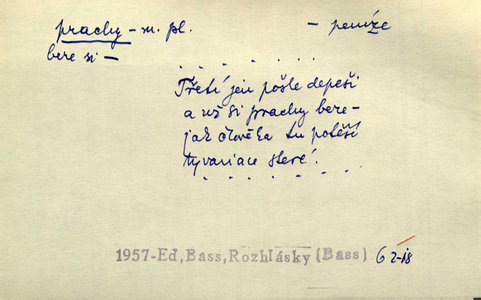 prachy – m. pl. – peníze
bere si –
. . . . . .
Třetí jen pošle depeši
a už si prachy bere –
jak člověka tu potěší
ty variace steré!
. . . . . . . .
1957-Ed,Bass,Rozhlásky(Bass) 62-18